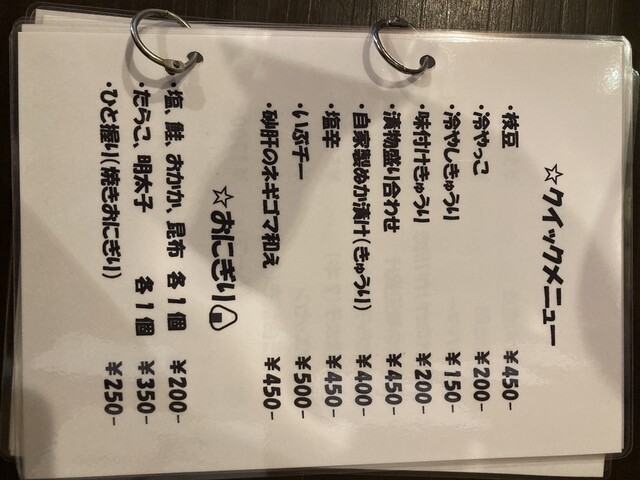 ☆クイックメニュー
・枝豆 ¥450-
・冷やっこ ¥200-
・冷やしきゅうり ¥150-
・味付けきゅうり ¥200-
・漬物盛り合わせ ¥450-
・自家製ぬか漬け(きゅうり) ¥400-
・塩辛 ¥450-
・いぶチー ¥500-
・砂肝のネギゴマ和え ¥450-
☆おにぎり🍙
・塩、鮭、おかか、昆布 各1個 ¥200-
・たらこ、明太子 各1個 ¥350-
・ひと握り(焼きおにぎり) ¥250-